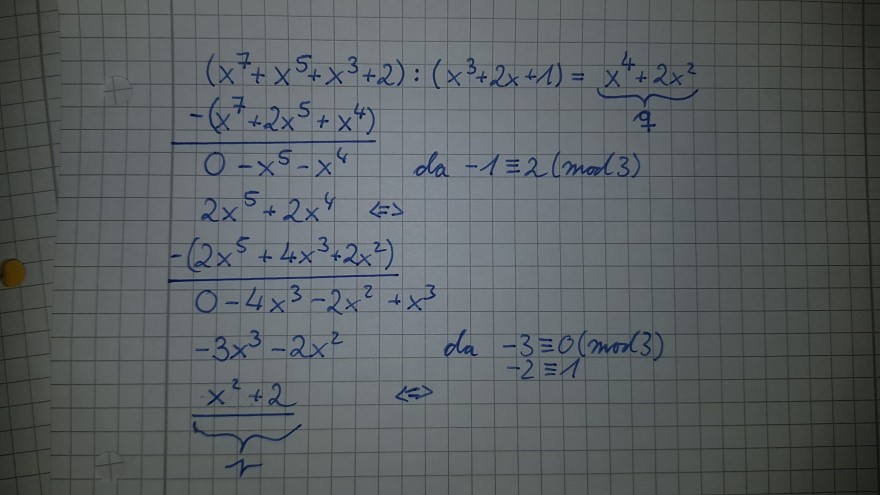 (x⁷ + x⁵ + x³ + 2) : (x³ + 2x + 1) = x⁴ + 2x²
q
-(x⁷ + 2x⁵ + x⁴)
0 - x⁵ - x⁴ da -1 ≡ 2 (mod 3)
2x⁵ + 2x⁴ <=>
-(2x⁵ + 4x³ + 2x²)
0 - 4x³ - 2x² + x³
-3x³ - 2x² da -3 ≡ 0 (mod 3)
-2 ≡ 1
x² + 2 <=>
r